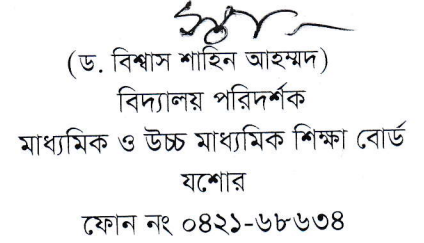 (ড. বিশ্বাস শাহিন আহম্মদ)
বিদ্যালয় পরিদর্শক
মাধ্যমিক ও উচ্চ মাধ্যমিক শিক্ষা বোর্ড
যশোর
ফোন নং ০৪২১-৬৮৬৩৪